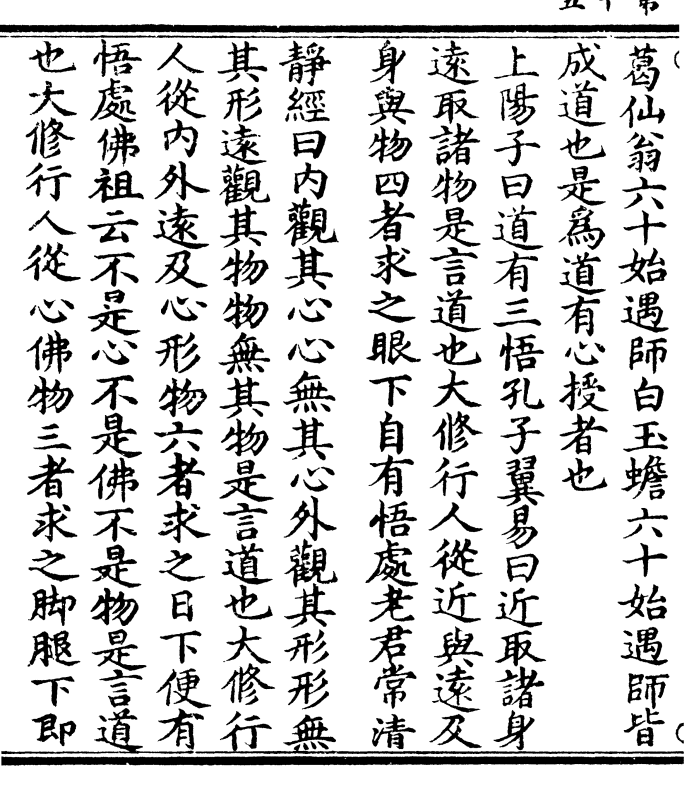 葛仙翁六十始遇師白玉蟾六十始遇師皆
成道也是爲道有心授者也
上陽子曰道有三悟孔子翼易曰近取諸身
遠取諸物是言道也大修行人從近與遠及
身與物四者求之眼下自有悟處老君常清
靜經曰內觀其心心無其心外觀其形形無
其形遠觀其物物無其物是言道也大修行
人從內外遠及心形物六者求之日下便有
悟處佛祖云不是心不是佛不是物是言道
也大修行人從心佛物三者求之脚腿下即